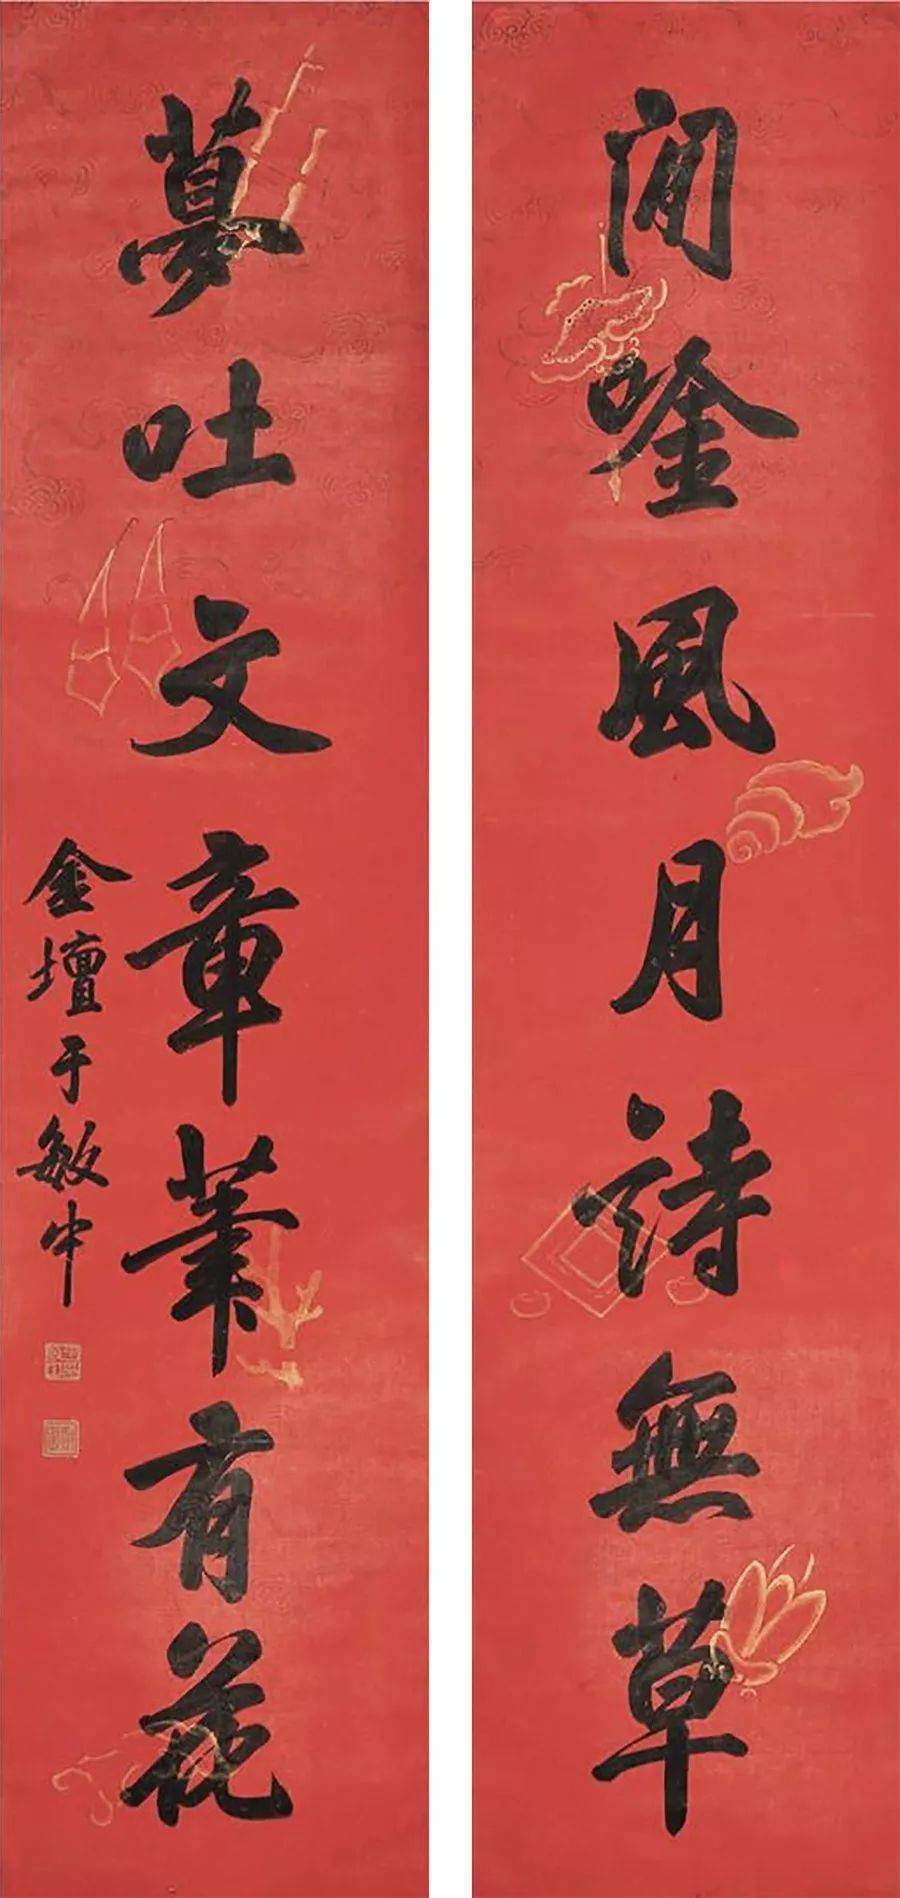 閒唫風月詩無草
夢吐文章筆有花
金壇于敏中